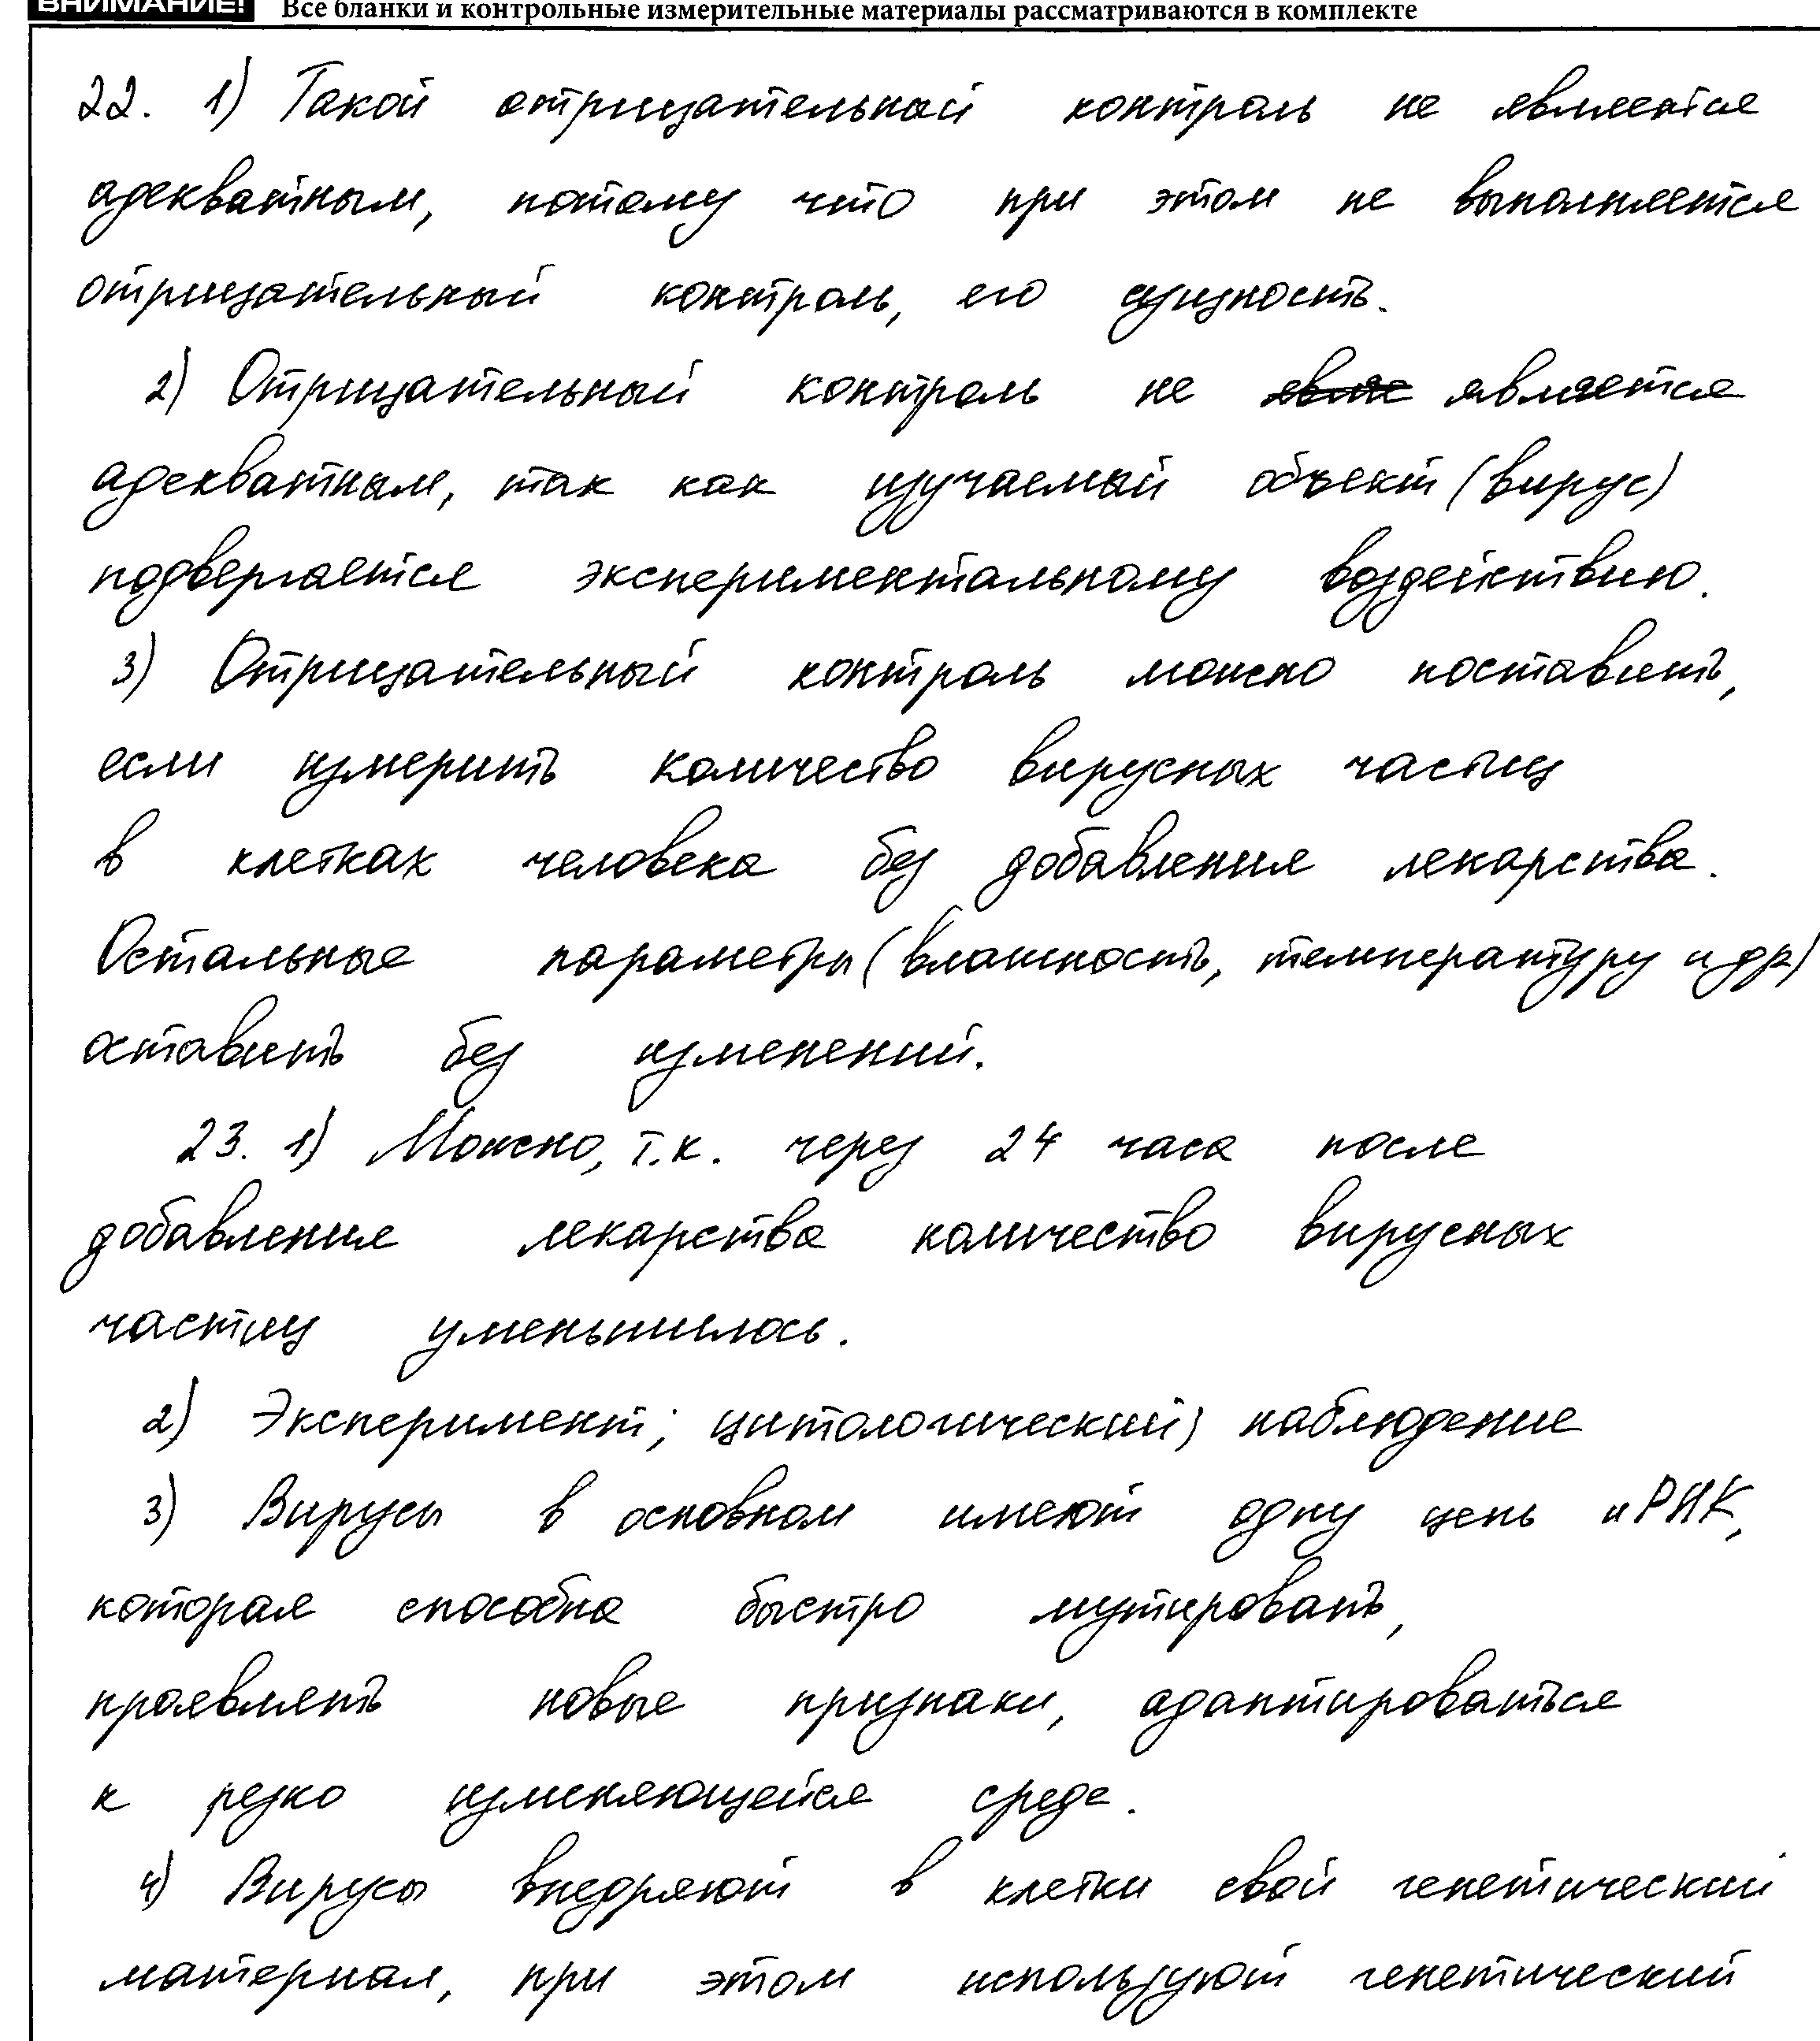 ВНИМАНИЕ! Все бланки и контрольные измерительные материалы рассматриваются в комплекте
22. 1) Такой отрицательный контроль не является
адекватным, потому что при этом не выполняется
отрицательный контроль, его сущность.
2) Отрицательный контроль не явля является
адекватным, так как изучаемый объект (вирус)
подвергается экспериментальному воздействию.
3) Отрицательный контроль можно поставить,
если измерить количество вирусных частиц
в клетках человека без добавления лекарства.
Остальные параметры (влажность, температуру и др)
оставить без изменений.
23. 1) Можно, т.к. через 24 часа после
добавления лекарства количество вирусных
частиц уменьшилось.
2) Эксперимент; цитологический; наблюдение
3) Вирусы в основном имеют одну цепь иРНК,
которая способна быстро мутировать,
проявлять новые признаки, адаптироваться
к резко изменяющейся среде.
4) Вирусы внедряют в клетки свой генетический
материал, при этом используют генетический